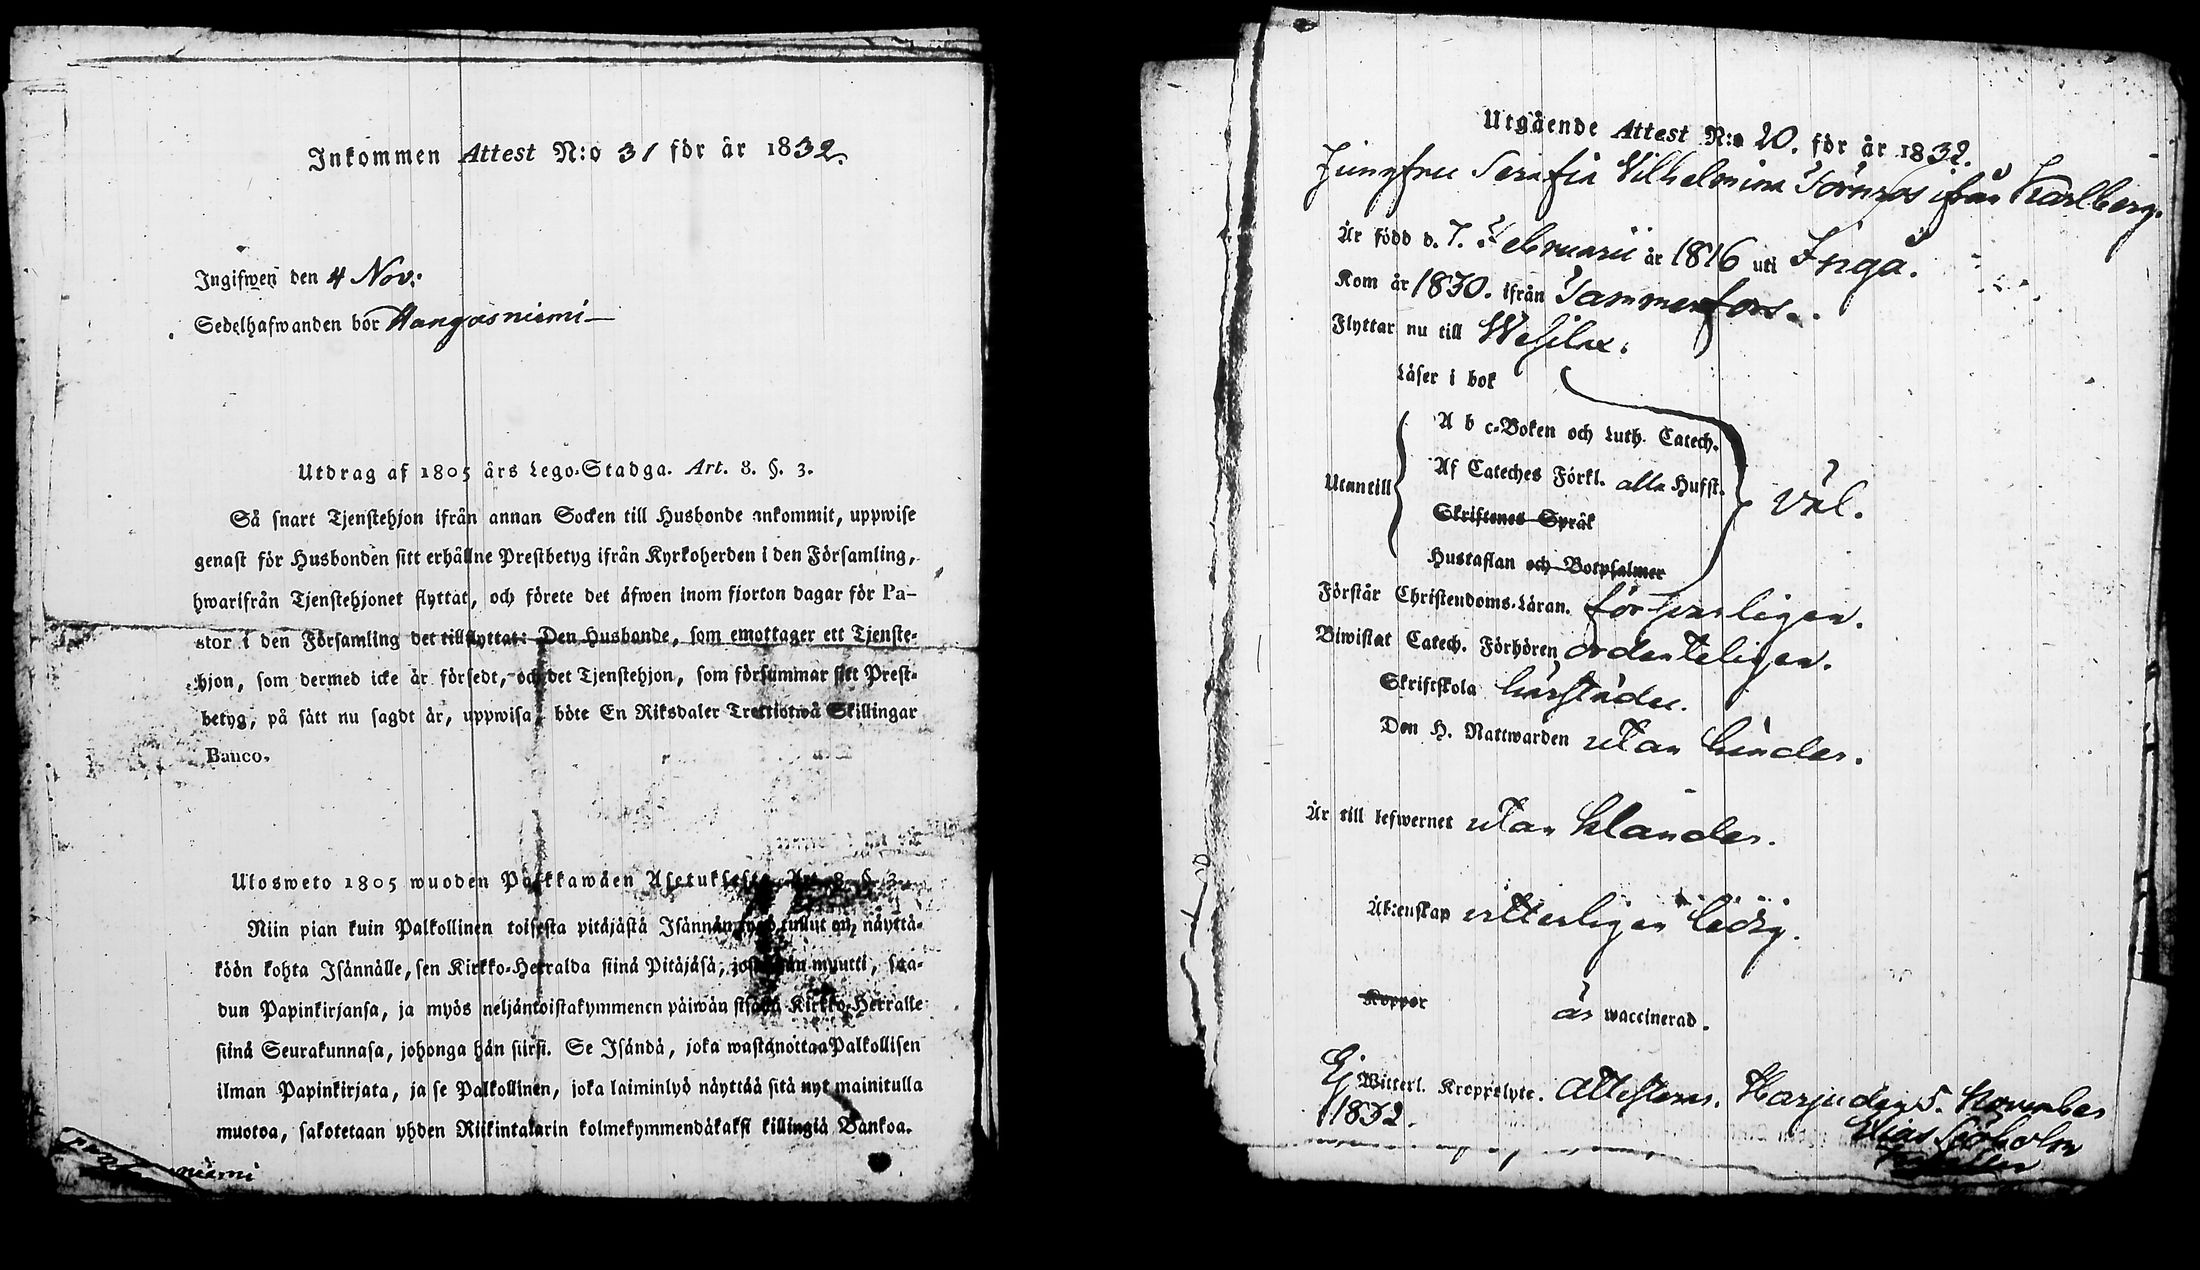 Inkommen Attest N:o 31 för år 1832.
Ingifwen den 4 Nov:
Sedelhafwanden bor Hangasniemi
Utdrag af 1805 års Lego-Stadga. Art. 8. §. 3.
Så snart Tjenstehjon ifrån annan Socken till Husbonde ankommit, uppwise
genast för Husbonden sitt erhållne Prestbetyg ifrån Kyrkoherden i den Församling,
hwarifrån Tjenstehjonet flyttat, och förete det äfwen inom fjorton dagar för Pa-
stor i den Församling det tillflyttat: Den Husbonde, som emottager ett Tjenste-
hjon, som dermed icke är försedt, och det Tjenstehjon, som försummar sitt Prest-
betyg, på sätt nu sagdt är, uppwisa, böte En Riksdaler Trettiotwå Skillingar
Banco.
Ulosweto 1805 wuoden Palkkawäen Asetuksesta, Art. 8. §. 3.
Niin pian kuin Palkollinen toisesta pitäjästä Isännän tygö tullut on, näyttä-
köön kohta Isännälle, sen Kirkko-Herralda siinä Pitäjäsä, josta hän muutti, saa-
dun Papinkirjansa, ja myös neljäntoistakymmenen päiwän sisällä Kirkko-Herralle
siinä Seurakunnasa, johonga hän siirsi. Se Isändä, joka wastanottaa Palkollisen
ilman Papinkirjata, ja se Palkollinen, joka laiminlyö näyttää sitä nyt mainitulla
muotoa, sakotetaan yhden Riikintalarin kolmekymmendäkaksi killingiä Bankoa.
niemi
Utgående Attest N:o 20. för år 1832.
Jungfru Serafia Vilhelmina Törnros ifrån Karlberg.
Är född d. 7. Februarii år 1816 uti Ingå.
Kom år 1830. ifrån Tammerfors.
Flyttar nu till Wesilax.
Läser i bok
A b c-Boken och Luth. Catech.
Af Cateches Förkl. alla Hufst.
Utantill
väl.
Skriftenes Språk
Hustaflan och Botpsalmer
Förstår Christendoms-Läran. försvarligen.
Biwistat Catech. Förhören ordenteligen.
Skriftskola härstädes.
Den H. Nattwarden utan hinder.
Är till lefwernet utan klander.
Äktenskap witterligen ledig.
Koppor är waccinerad.
Ej Witterl. Kroppslyte. Attesterar. Harju den 5. November
1832.